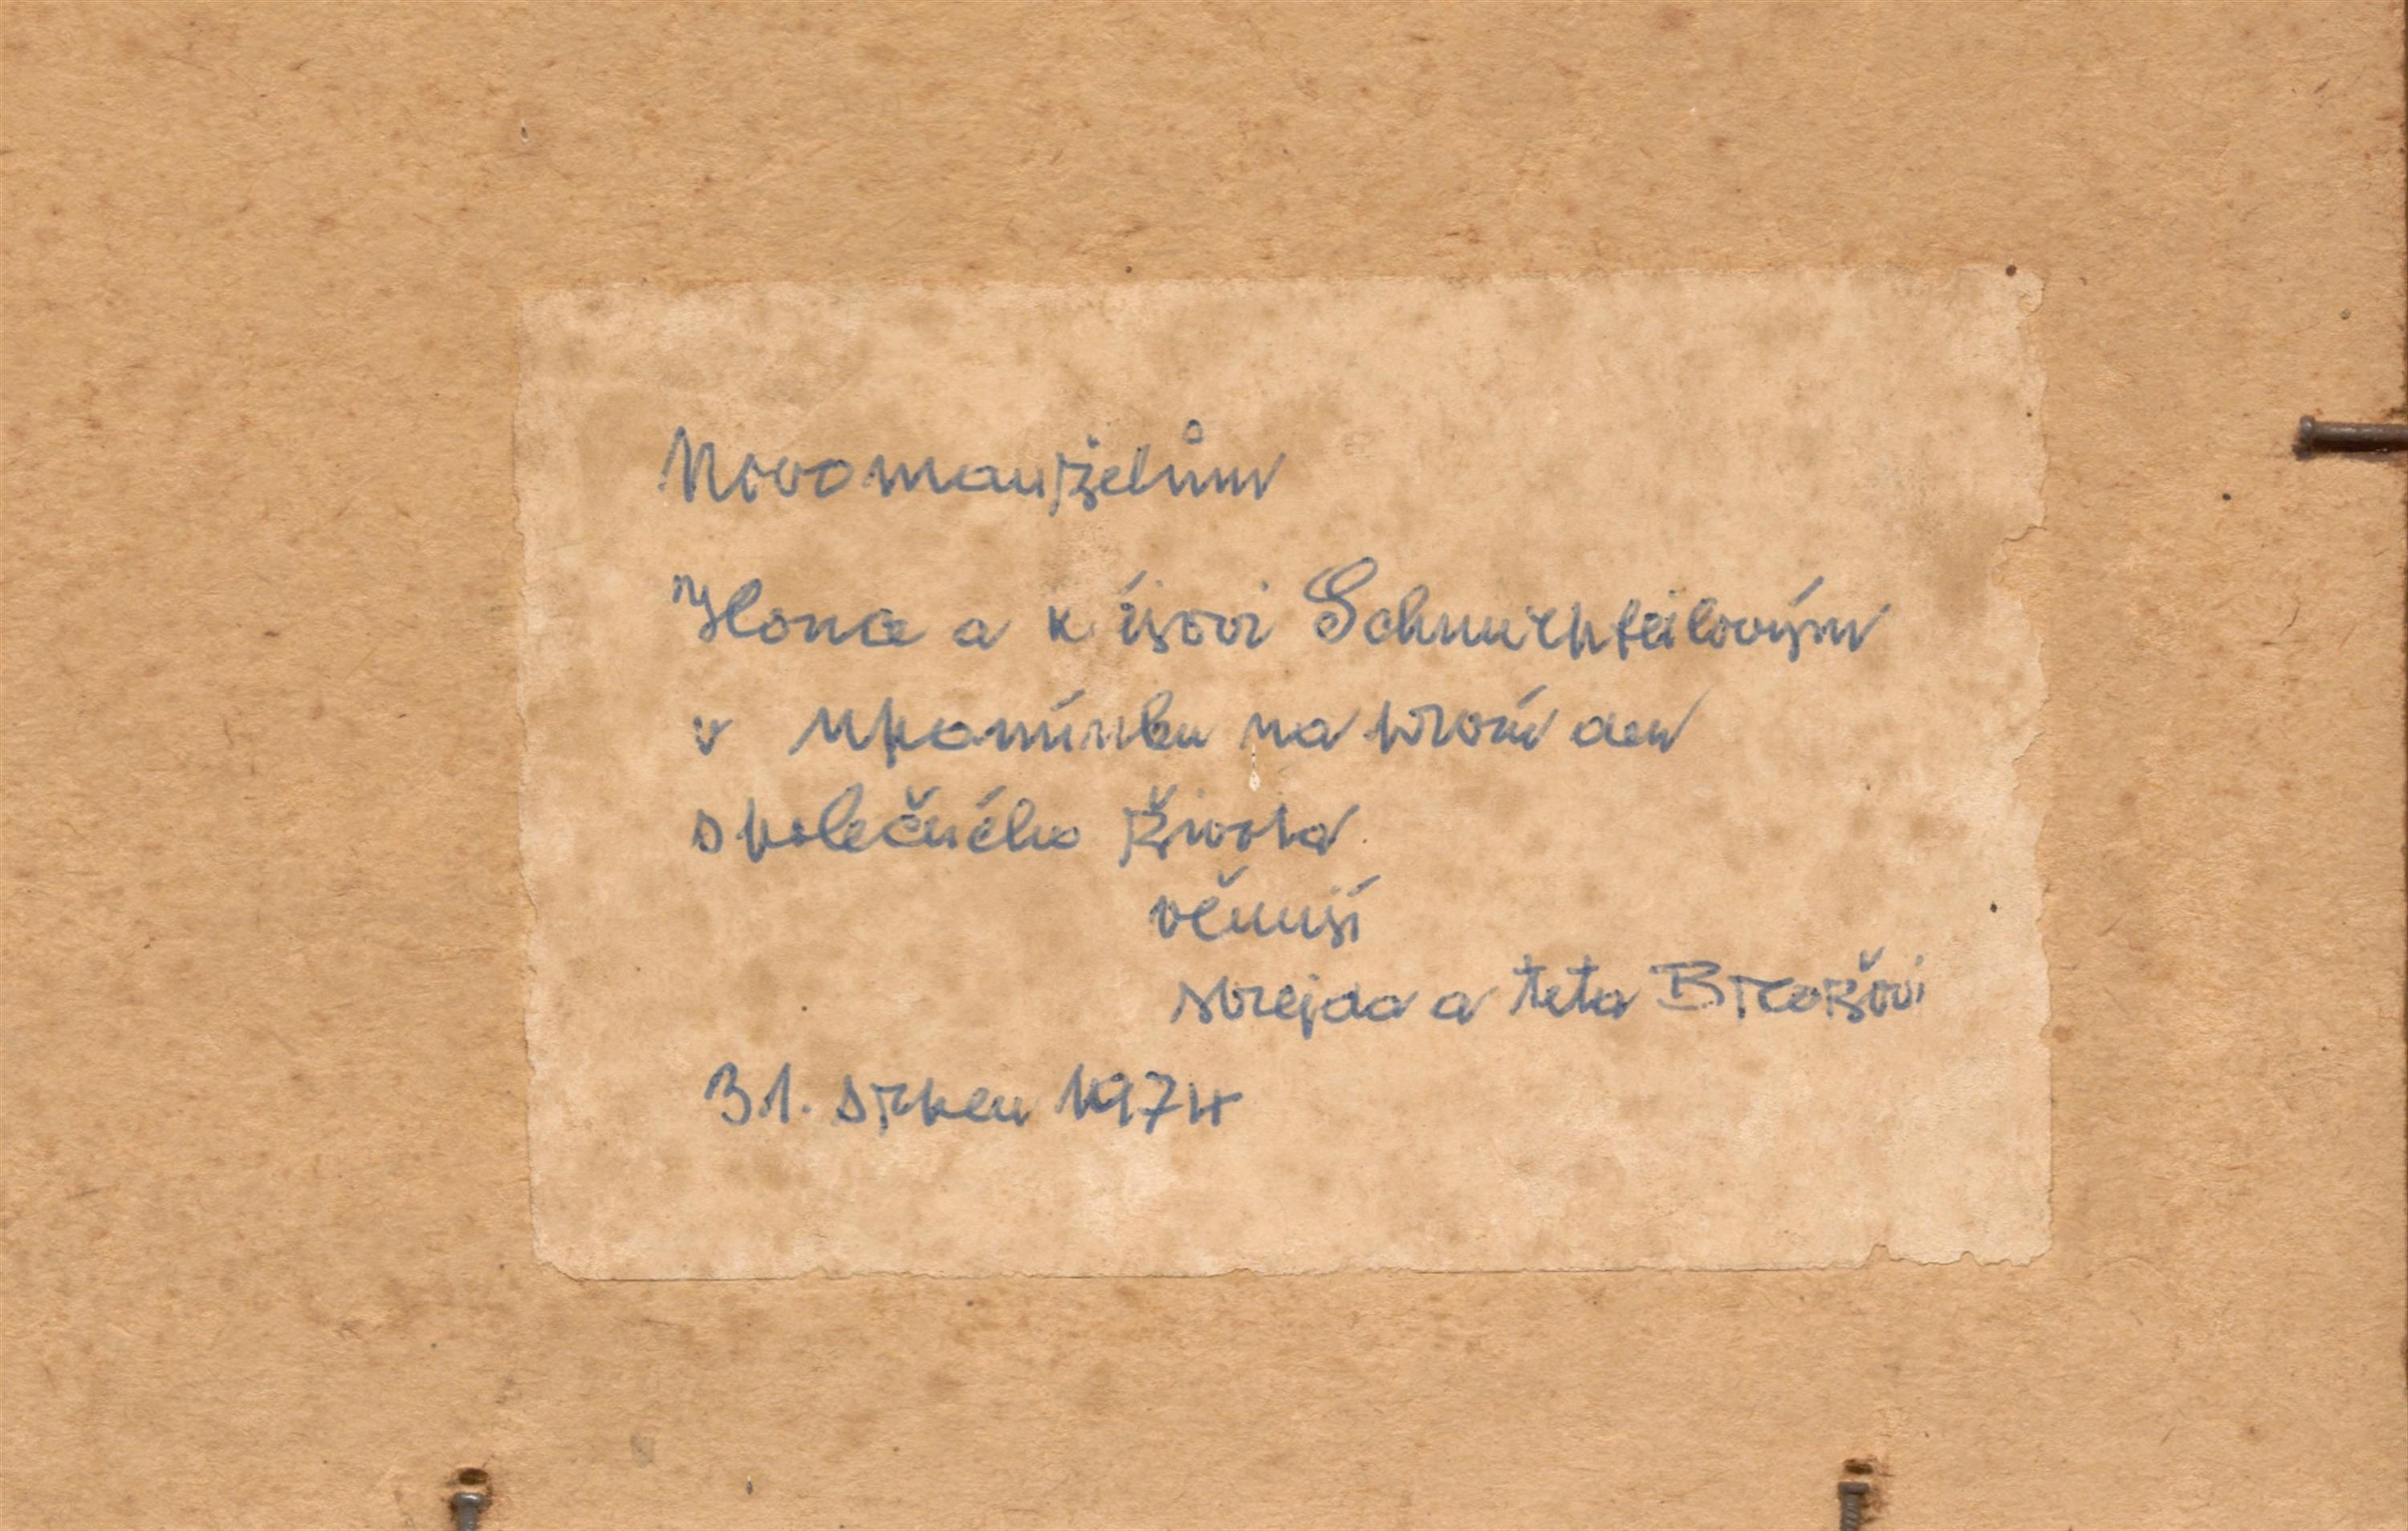 Novomanželům
Iloně a Schnurpfeilovým
v upomínku na první den
společného života
věnují
strejda a teta
31. srpen 1974